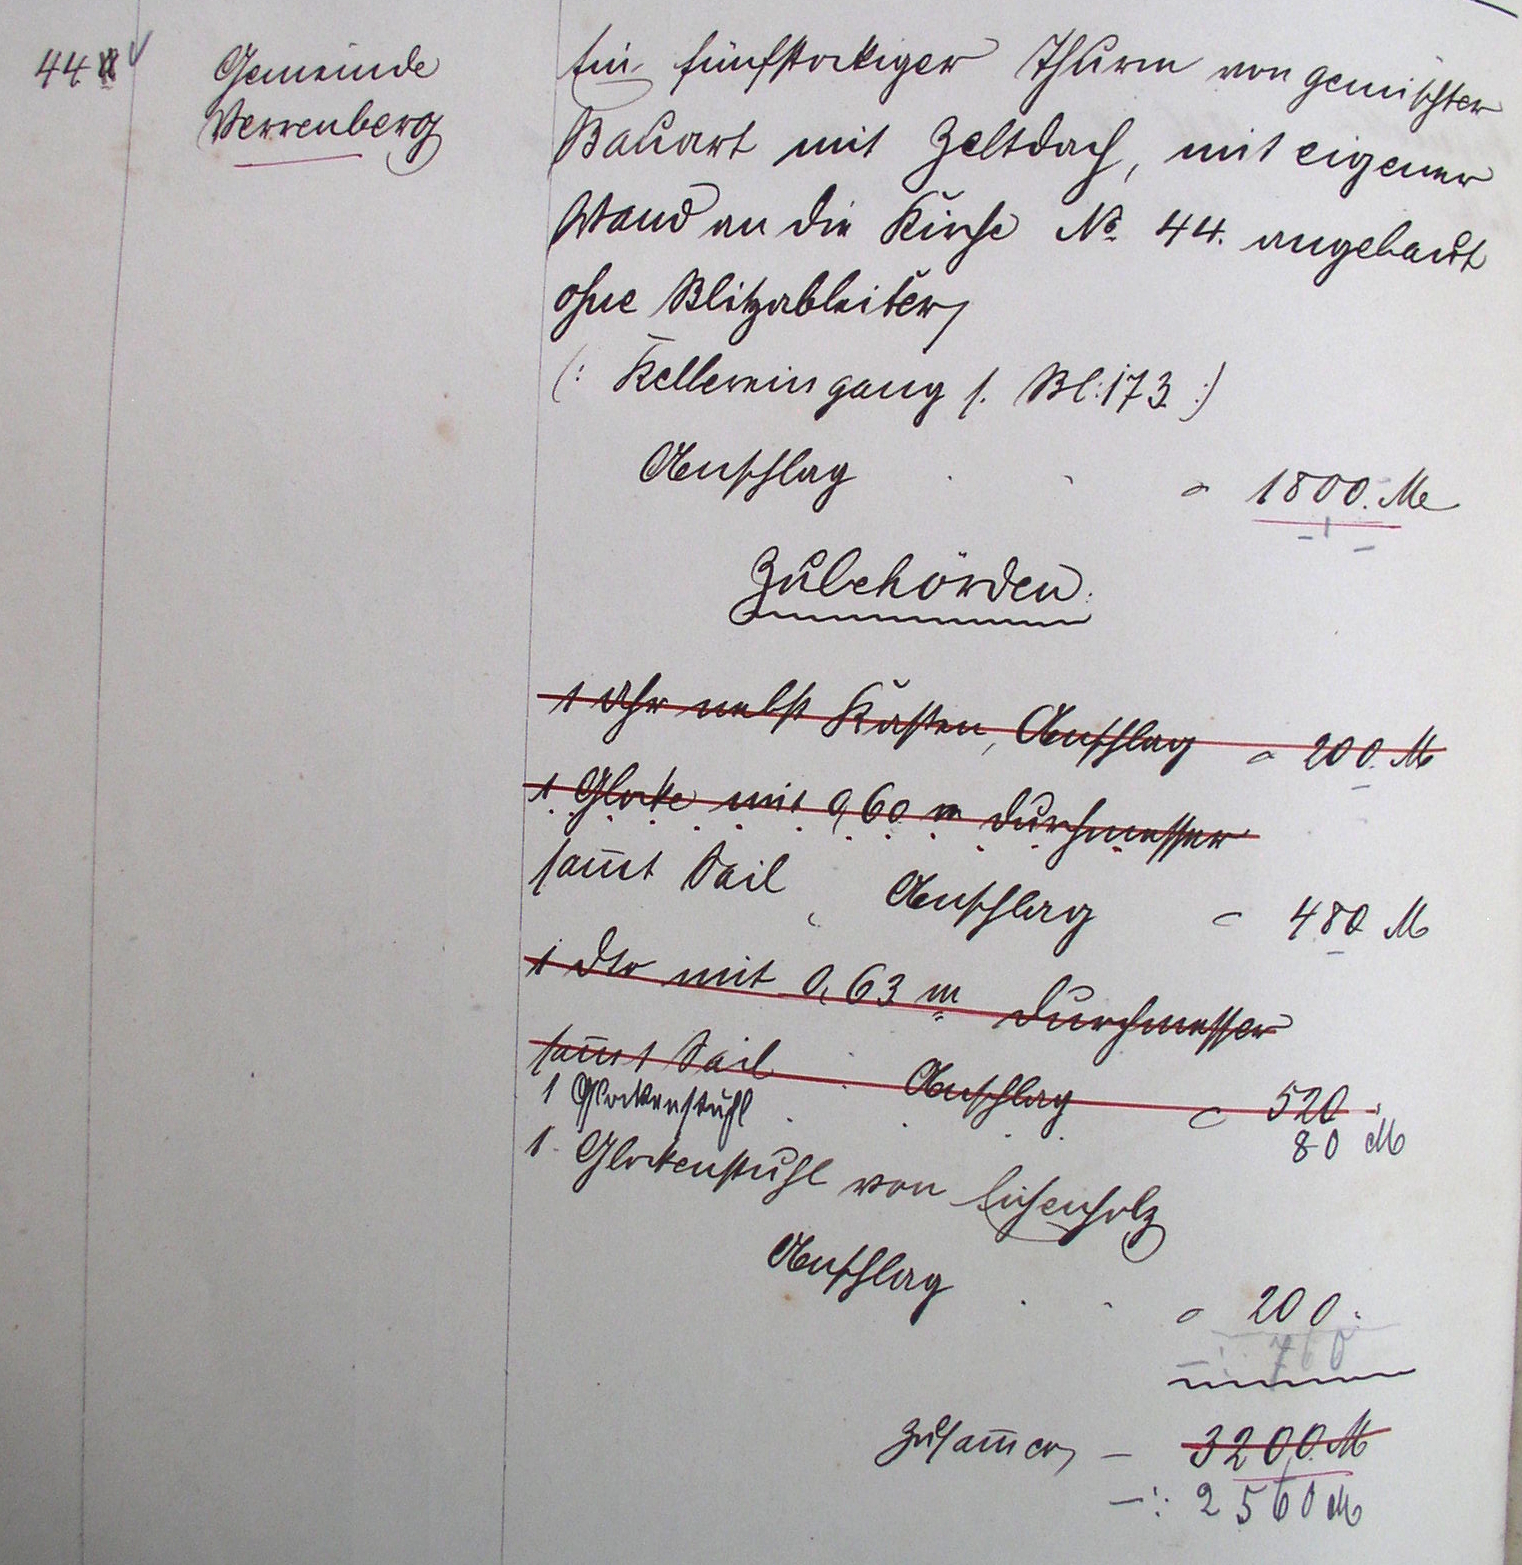 44a
Gemeinde
Verrenberg
Ein fünfstockiger Thurm von gemischter
Bauart mit Zeltdach, mit eigener
Wand an die Kirche No. 44. angebaut
ohne Blitzableiter,
(: Kellereingang s. Bl: 173. :)
Anschlag = 1800. M
Zubehörden:
1 Uhr nebst Kasten, Anschlag = 200. M
1 Glocke mit 0,60 m Durchmesser
sam̅t Sail, Anschlag = 480 M
1 dto mit 0,63 m Durchmesser
sam̅t Sail Anschlag = 520
1 Glockenstuhl 80 M
1 Glockenstuhl von Eichenholz
Anschlag = 200.
760
Zusam̅en — 3200. M
2560 M